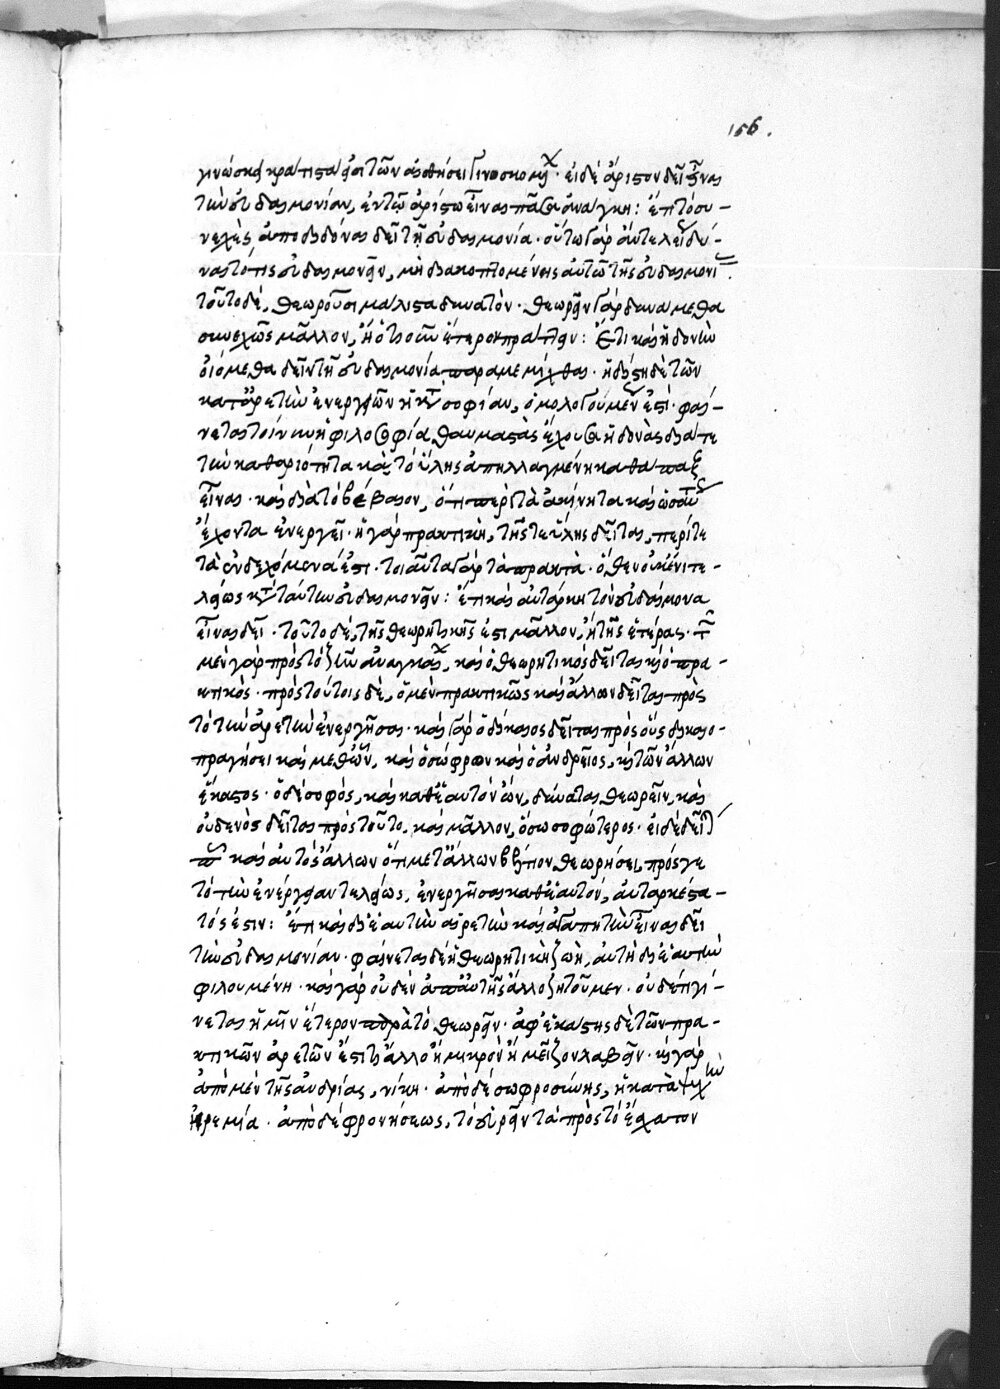 156.
γινώσκει κράτιστα ἐστι τῶν αἰσθήσει γινωσκομένων· εἰ δὲ ἄριστον δεῖ εἶναι
τὴν εὐδαιμονίαν, ἐν τῷ ἀρίστῳ εἶναι πᾶσα ἀνάγκη: ἔτι τὸ συ-
νεχὲς ἀποδιδόναι δεῖ τῇ εὐδαιμονίᾳ· οὕτω γὰρ ἂν τελεί
ως τις εὐδαιμονεῖν, μὴ διακοπτομένης αὐτῷ τῆς εὐδαιμονί
τοῦτο δὲ, θεωροῦσι μάλιστα δυνατὸν· θεωρεῖν γὰρ δυνάμεθα
συνεχῶς μᾶλλον, ἢ ὁτιοῦν ἕτερον πράττειν: Ἔτι καὶ ἡδονὴν
οἰόμεθα δεῖν τῇ εὐδαιμονίᾳ παραμεμίχθαι· ἡδίστη δὲ τῶν
κατ' ἀρετὴν ἐνεργειῶν ἡ κατὰ σοφίαν, ὁμολογουμένως ἐστὶ· φαί-
νεται τοίνυν ἡ φιλοσοφία θαυμαστὰς ἔχουσα ἡδονὰς διά τε
τὴν καθαριότητα καὶ τὸ ὕλης ἀπηλλαγμένη καθάπαξ
εἶναι· καὶ διὰ τὸ βέβαιον, ὅτι περὶ τὰ ἀκίνητα καὶ ὡσαύτως
ἔχοντα ἐνεργεῖ· ἡ γὰρ πρακτικὴ, τῆς τε ὕλης δεῖται, περί τε
τὰ ἐνδεχόμενά ἐστι· τοιαῦτα γὰρ τὰ πρακτὰ· ὅθεν οὐκ ἔνι τε-
λείως κατὰ ταύτην εὐδαιμονεῖν: ἔτι καὶ αὐτάρκη τὸν εὐδαίμονα
εἶναι δεῖ· τοῦτο δὲ, τῆς θεωρητικῆς ἐστι μᾶλλον, ἢ τῆς ἑτέρας· τῶν
μὲν γὰρ πρὸς τὸ ζῆν ἀναγκαίων, καὶ ὁ θεωρητικὸς δεῖται καὶ ὁ πρα-
κτικὸς· πρὸς τούτοις δὲ, ὁ μὲν πρακτικὸς καὶ ἄλλων δεῖται πρὸς
τὸ τὴν ἀρετὴν ἐνεργῆσαι· καὶ γὰρ ὁ δίκαιος δεῖται πρὸς οὓς δικαιο-
πραγήσει καὶ μεθ' ὧν, καὶ ὁ σώφρων καὶ ὁ ἀνδρεῖος, καὶ τῶν ἄλλων
ἕκαστος· ὁ δὲ σοφὸς, καὶ καθ' ἑαυτὸν ὢν, δύναται θεωρεῖν, καὶ
οὐδενὸς δεῖται πρὸς τοῦτο, καὶ μᾶλλον, ὅσῳ σοφώτερος· εἰ δὲ δεῖταί
πως καὶ αὐτὸς ἄλλων ὅτι μετ' ἄλλων βέλτιον θεωρήσει, πρός γε
τὸ τὴν ἐνέργειαν τελείως, ἐνεργῆσαι καθ' ἑαυτὸν, αὐταρκέστα-
τός ἐστιν: ἔτι καὶ δι' ἑαυτὴν αἱρετὴν καὶ ἀγαπητὴν εἶναι δεῖ
τὴν εὐδαιμονίαν· φαίνεται δὲ ἡ θεωρητικὴ ζωὴ, αὐτὴ δι' ἑαυτὴν
φιλουμένη· καὶ γὰρ οὐδὲν ἀπ' αὐτῆς ἄλλο ζητοῦμεν· οὐδέ τι γί-
νεται ἡμῖν ἕτερον παρὰ τὸ θεωρεῖν· ἀφ' ἑκάστης δὲ τῶν πρα-
κτικῶν ἀρετῶν ἔστι τι ἄλλο ἢ μικρὸν ἢ μεῖζον λαβεῖν· καὶ γὰρ
ἀπὸ μὲν τῆς ἀνδρίας, νίκη· ἀπὸ δὲ σωφροσύνης, ἡ κατὰ ψυχὴν
ἠρεμία· ἀπὸ δὲ φρονήσεως, τὸ εὑρεῖν τὰ πρὸς τὸ ἔσχατον